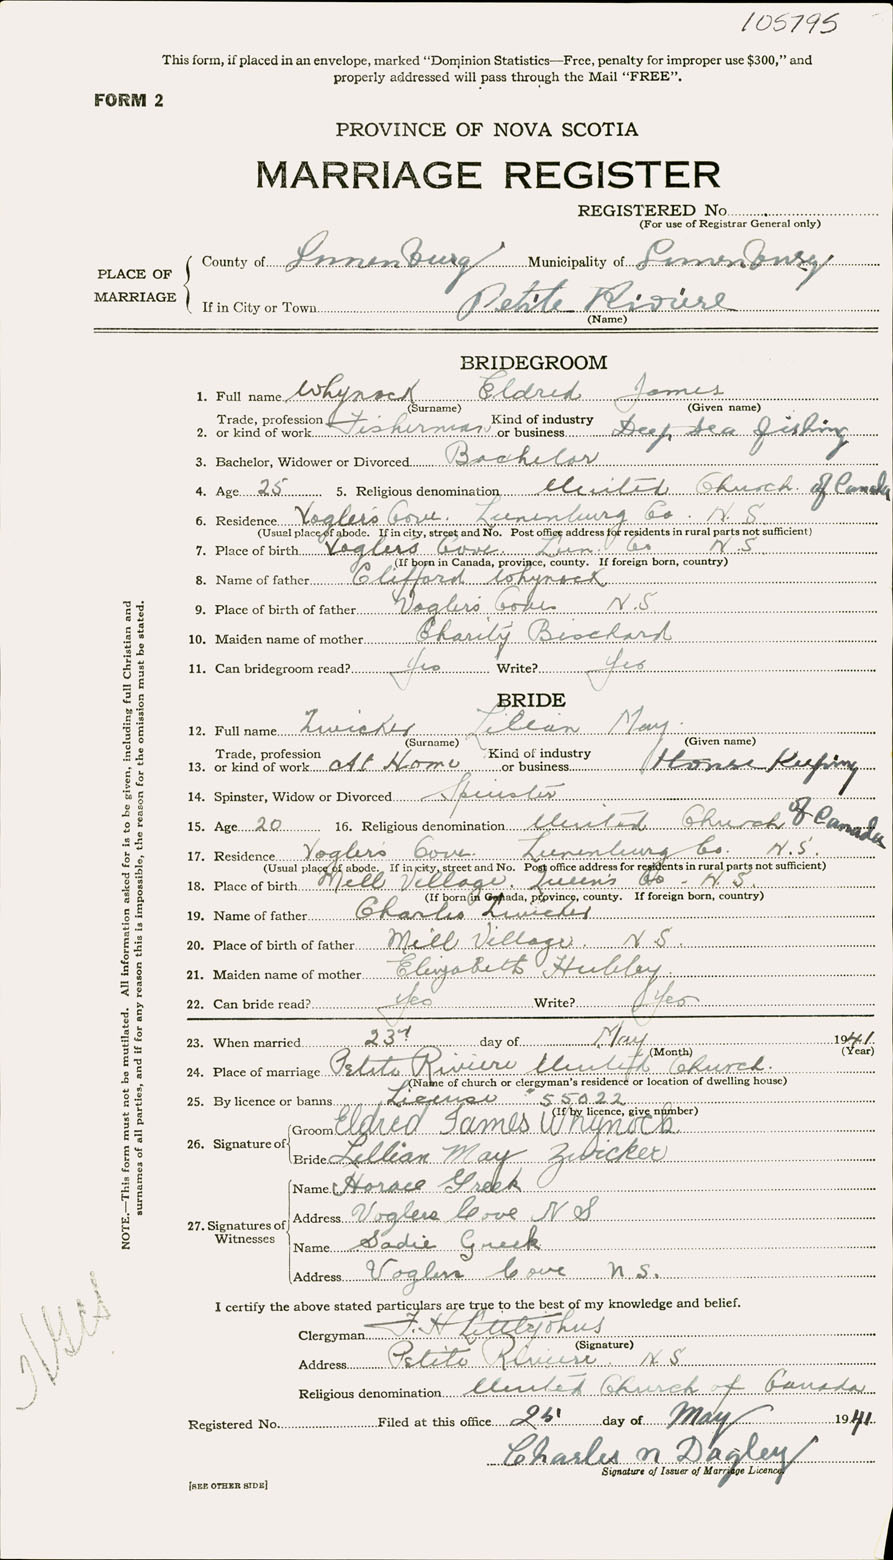 105795
This form, if placed in an envelope, marked "Dominion Statistics—Free, penalty for improper use $300," and
properly addressed will pass through the Mail "FREE".
FORM 2
PROVINCE OF NOVA SCOTIA
MARRIAGE REGISTER
REGISTERED No.
(For use of Registrar General only)
PLACE OF MARRIAGE
County of Lunenburg Municipality of Lunenburg
If in City or Town Petite Riviere
(Name)
BRIDEGROOM
1. Full name Whynock Eldred James
(Surname) (Given name)
2. Trade, profession or kind of work Fisherman Kind of industry or business Deep Sea fishing
3. Bachelor, Widower or Divorced Bachelor
4. Age 25 5. Religious denomination United Church of Canada
6. Residence Voglers Cove. Lunenburg Co. N.S
(Usual place of abode. If in city, street and No. Post office address for residents in rural parts not sufficient)
7. Place of birth Voglers Cove. Lun. Co N.S.
(If born in Canada, province, county. If foreign born, country)
8. Name of father Clifford Whynock
9. Place of birth of father Voglers Cove N.S
10. Maiden name of mother Charity
11. Can bridegroom read? Yes Write? Yes
BRIDE
12. Full name Zwicker Lilian May.
(Surname) (Given name)
13. Trade, profession or kind of work At Home Kind of industry or business House Keeping
14. Spinster, Widow or Divorced Spinster
15. Age 20 16. Religious denomination United Church of Canada
17. Residence Voglers Cove. Lunenburg Co. N.S.
(Usual place of abode. If in city, street and No. Post office address for residents in rural parts not sufficient)
18. Place of birth Mill Village. Queens Co - N.S.
(If born in Canada, province, county. If foreign born, country)
19. Name of father Charles Zwicker
20. Place of birth of father Mill Village. N.S.
21. Maiden name of mother Elizabeth Hubley.
22. Can bride read? Yes Write? Yes
23. When married 23rd day of May 1941
(Month) (Year)
24. Place of marriage Petite Riviere United Church.
(Name of church or clergyman's residence or location of dwelling house)
25. By licence or banns License 55022
(If by licence, give number)
26. Signature of Groom Eldred James Whynock
Bride Lillian May Zwicker
27. Signatures of Witnesses
Name Horace Greek
Address Voglers Cove N S
Name Sadie Greek
Address Voglers Cove N.S.
I certify the above stated particulars are true to the best of my knowledge and belief.
Clergyman F. H. Littlejohns
(Signature)
Address Petite Riviere. N.S
Religious denomination United Church of Canada
Registered No. Filed at this office 25 day of May 1941
Charles N Dagley
Signature of Issuer of Marriage Licence
[SEE OTHER SIDE]
NOTE.—This form must not be mutilated. All information asked for is to be given, including full Christian and
surnames of all parties, and if for any reason this is impossible, the reason for the omission must be stated.